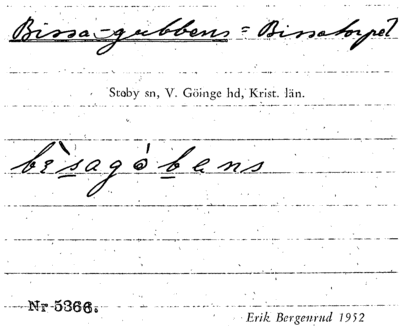 Bissa-gubbens = Bissatorpet
Stoby sn, V. Göinge hd, Krist. län.
bìsagóbens
Nr 5366.
Erik Bergenrud 1952